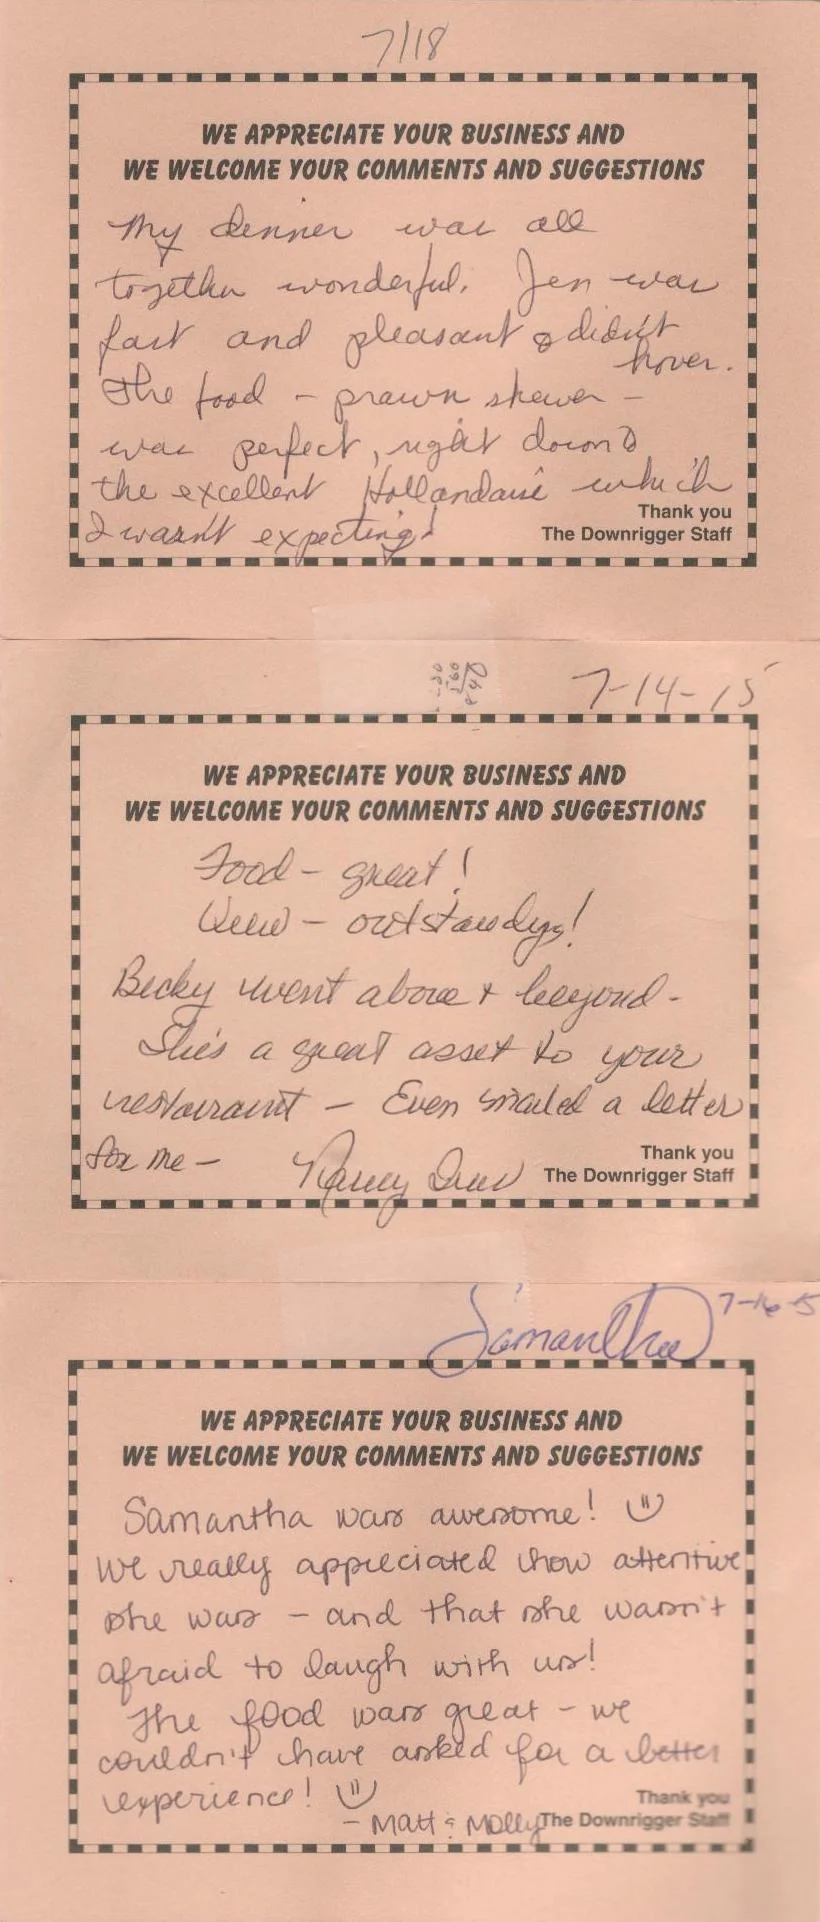 7/18
WE APPRECIATE YOUR BUSINESS AND
WE WELCOME YOUR COMMENTS AND SUGGESTIONS
My dinner was all
together wonderful. Jen was
fast and pleasant & didn't
hover.
The food - prawn skewer -
was perfect, right down to
the excellent Hollandaise which
I wasn't expecting!
Thank you
The Downrigger Staff
7-14-15
WE APPRECIATE YOUR BUSINESS AND
WE WELCOME YOUR COMMENTS AND SUGGESTIONS
Food - great!
View - outstanding!
Becky went above + beyond -
She's a great asset to your
restaurant - Even mailed a letter
for me - Nancy
Thank you
The Downrigger Staff
Samantha 7-16-15
WE APPRECIATE YOUR BUSINESS AND
WE WELCOME YOUR COMMENTS AND SUGGESTIONS
Samantha was awesome!
We really appreciated how attentive
she was - and that she wasn't
afraid to laugh with us!
The food was great - we
couldn't have asked for a better
experience!
- Matt & Molly
Thank you
The Downrigger Staff